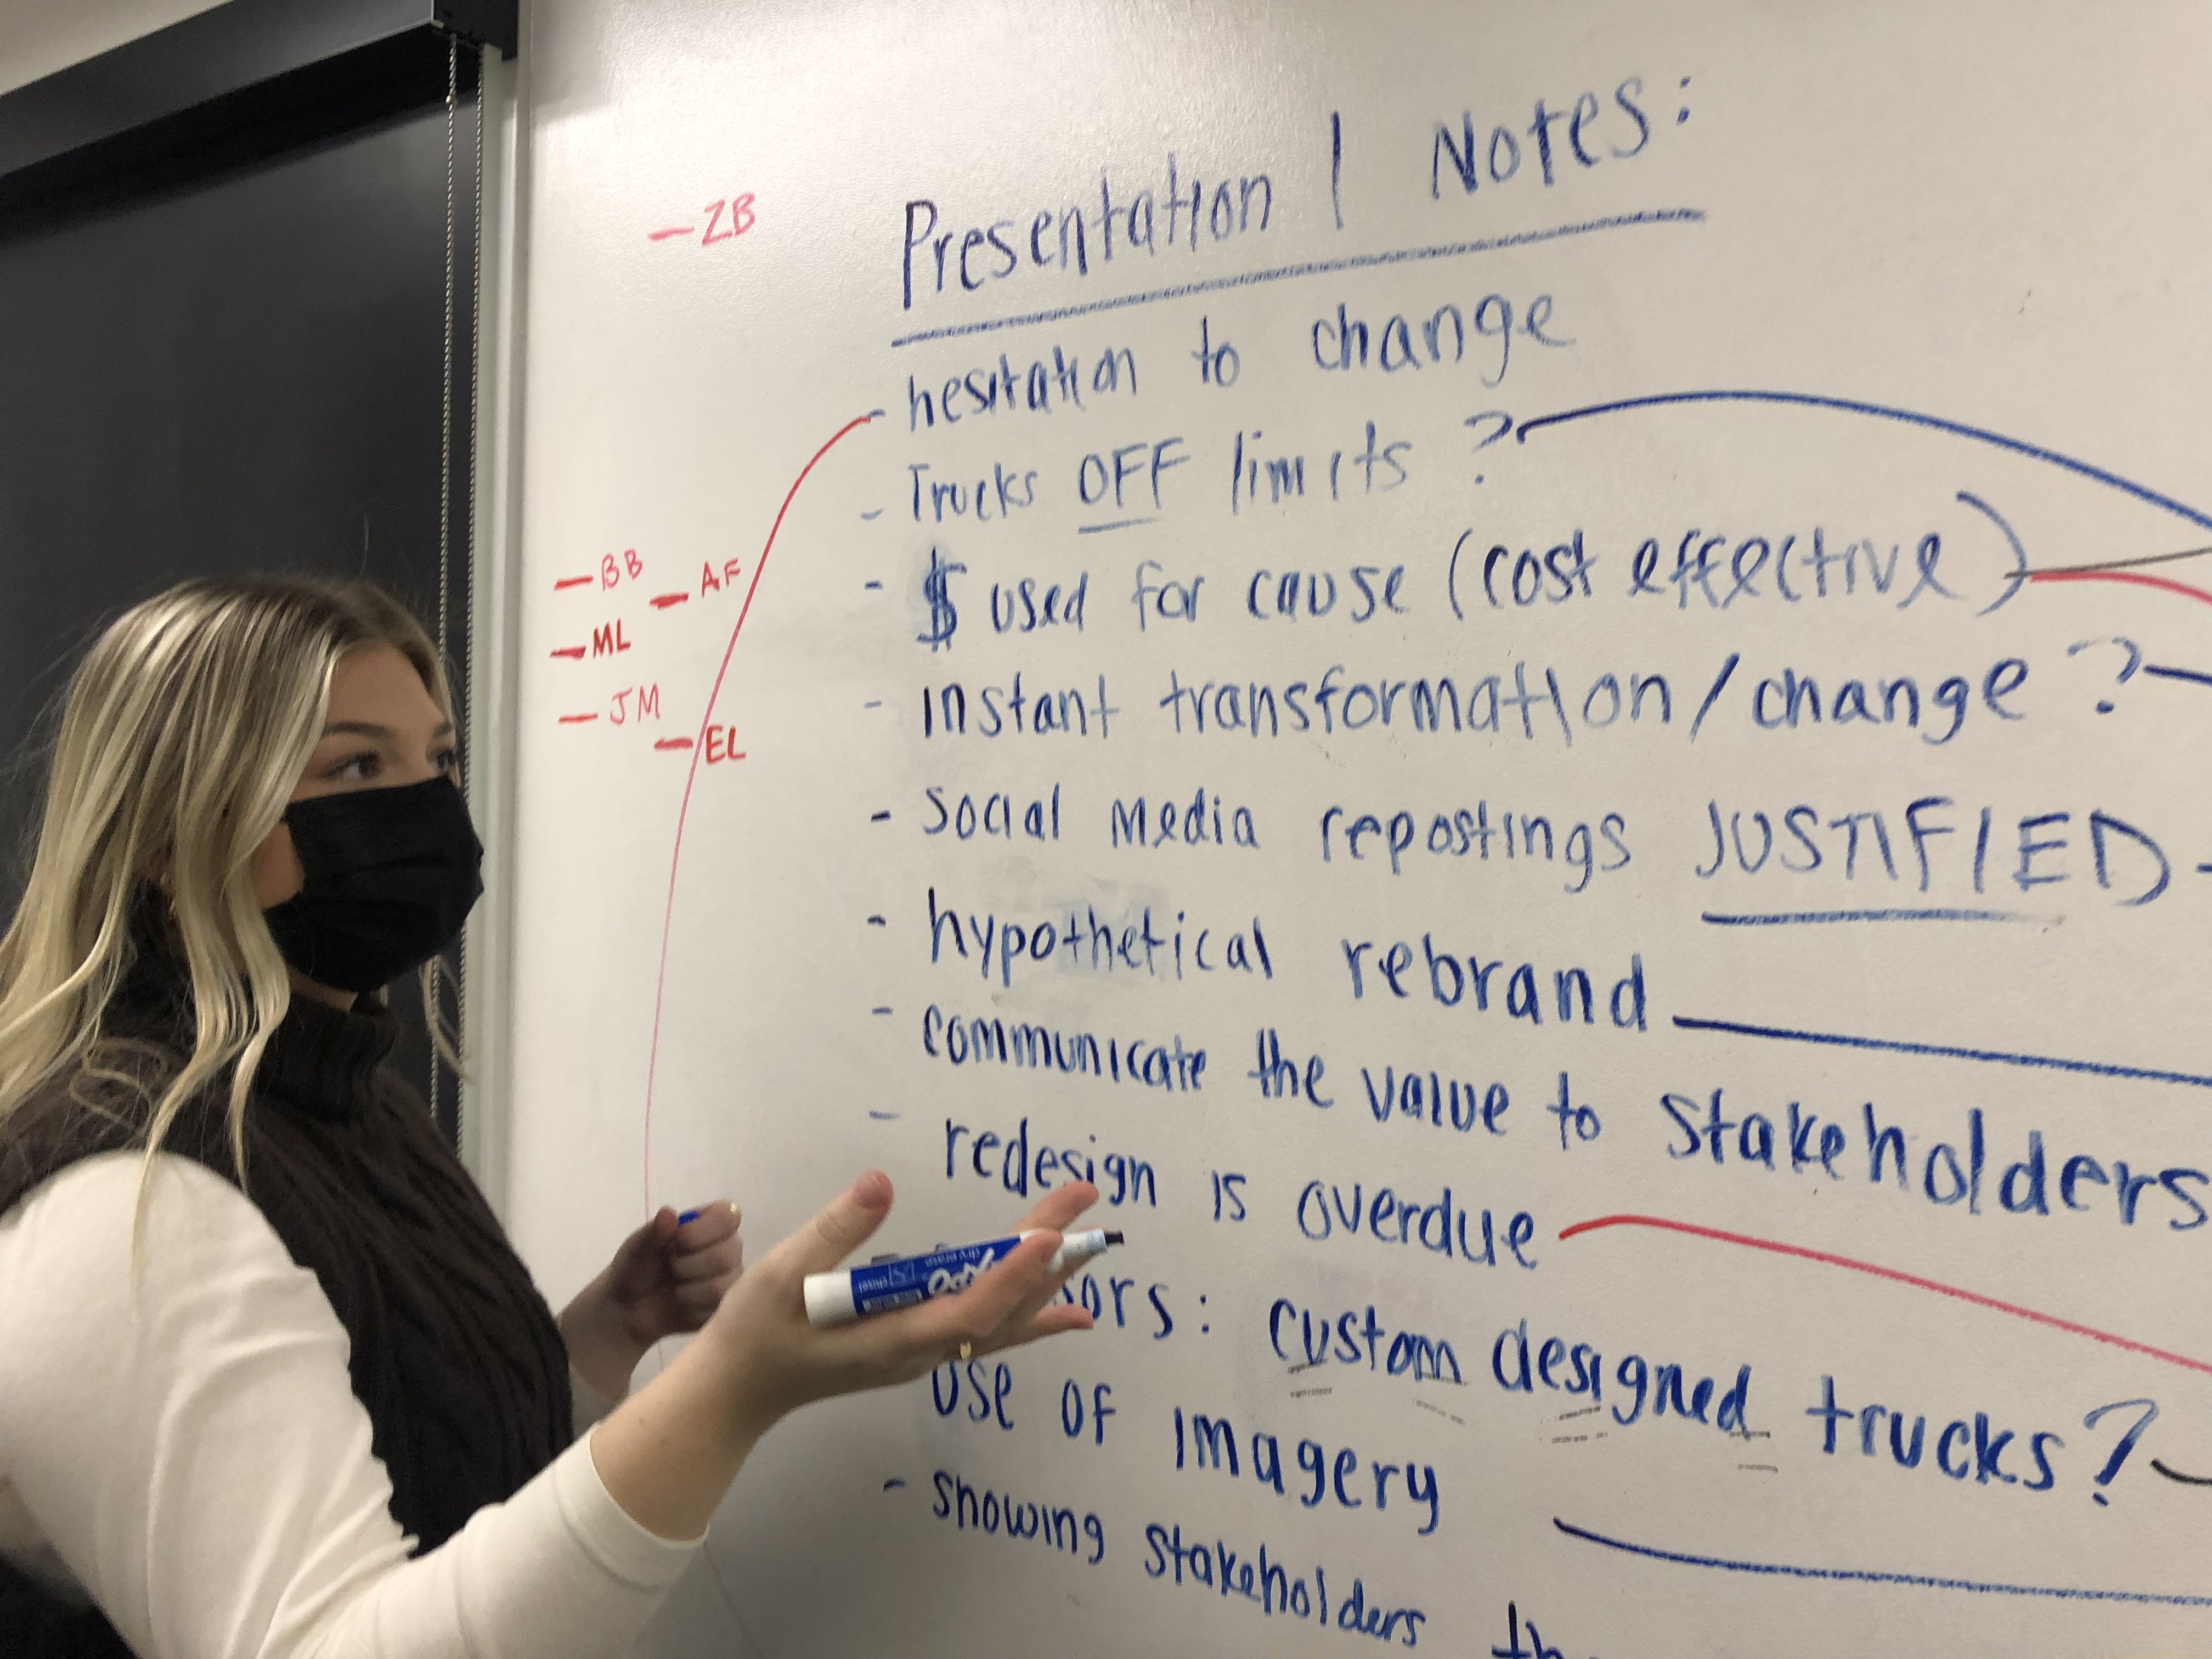 Presentation 1 Notes:
- hesitation to change
- Trucks OFF limits ?
- $ used for cause (cost effective)
- instant transformation / change ?
- social media repostings JUSTIFIED -
- hypothetical rebrand
- communicate the value to stakeholders
- redesign is overdue
: custom designed trucks?
use of imagery
- showing stakeholders
- ZB
- BB
- AF
- ML
- JM
- EL
EXPO
dry erase
chisel